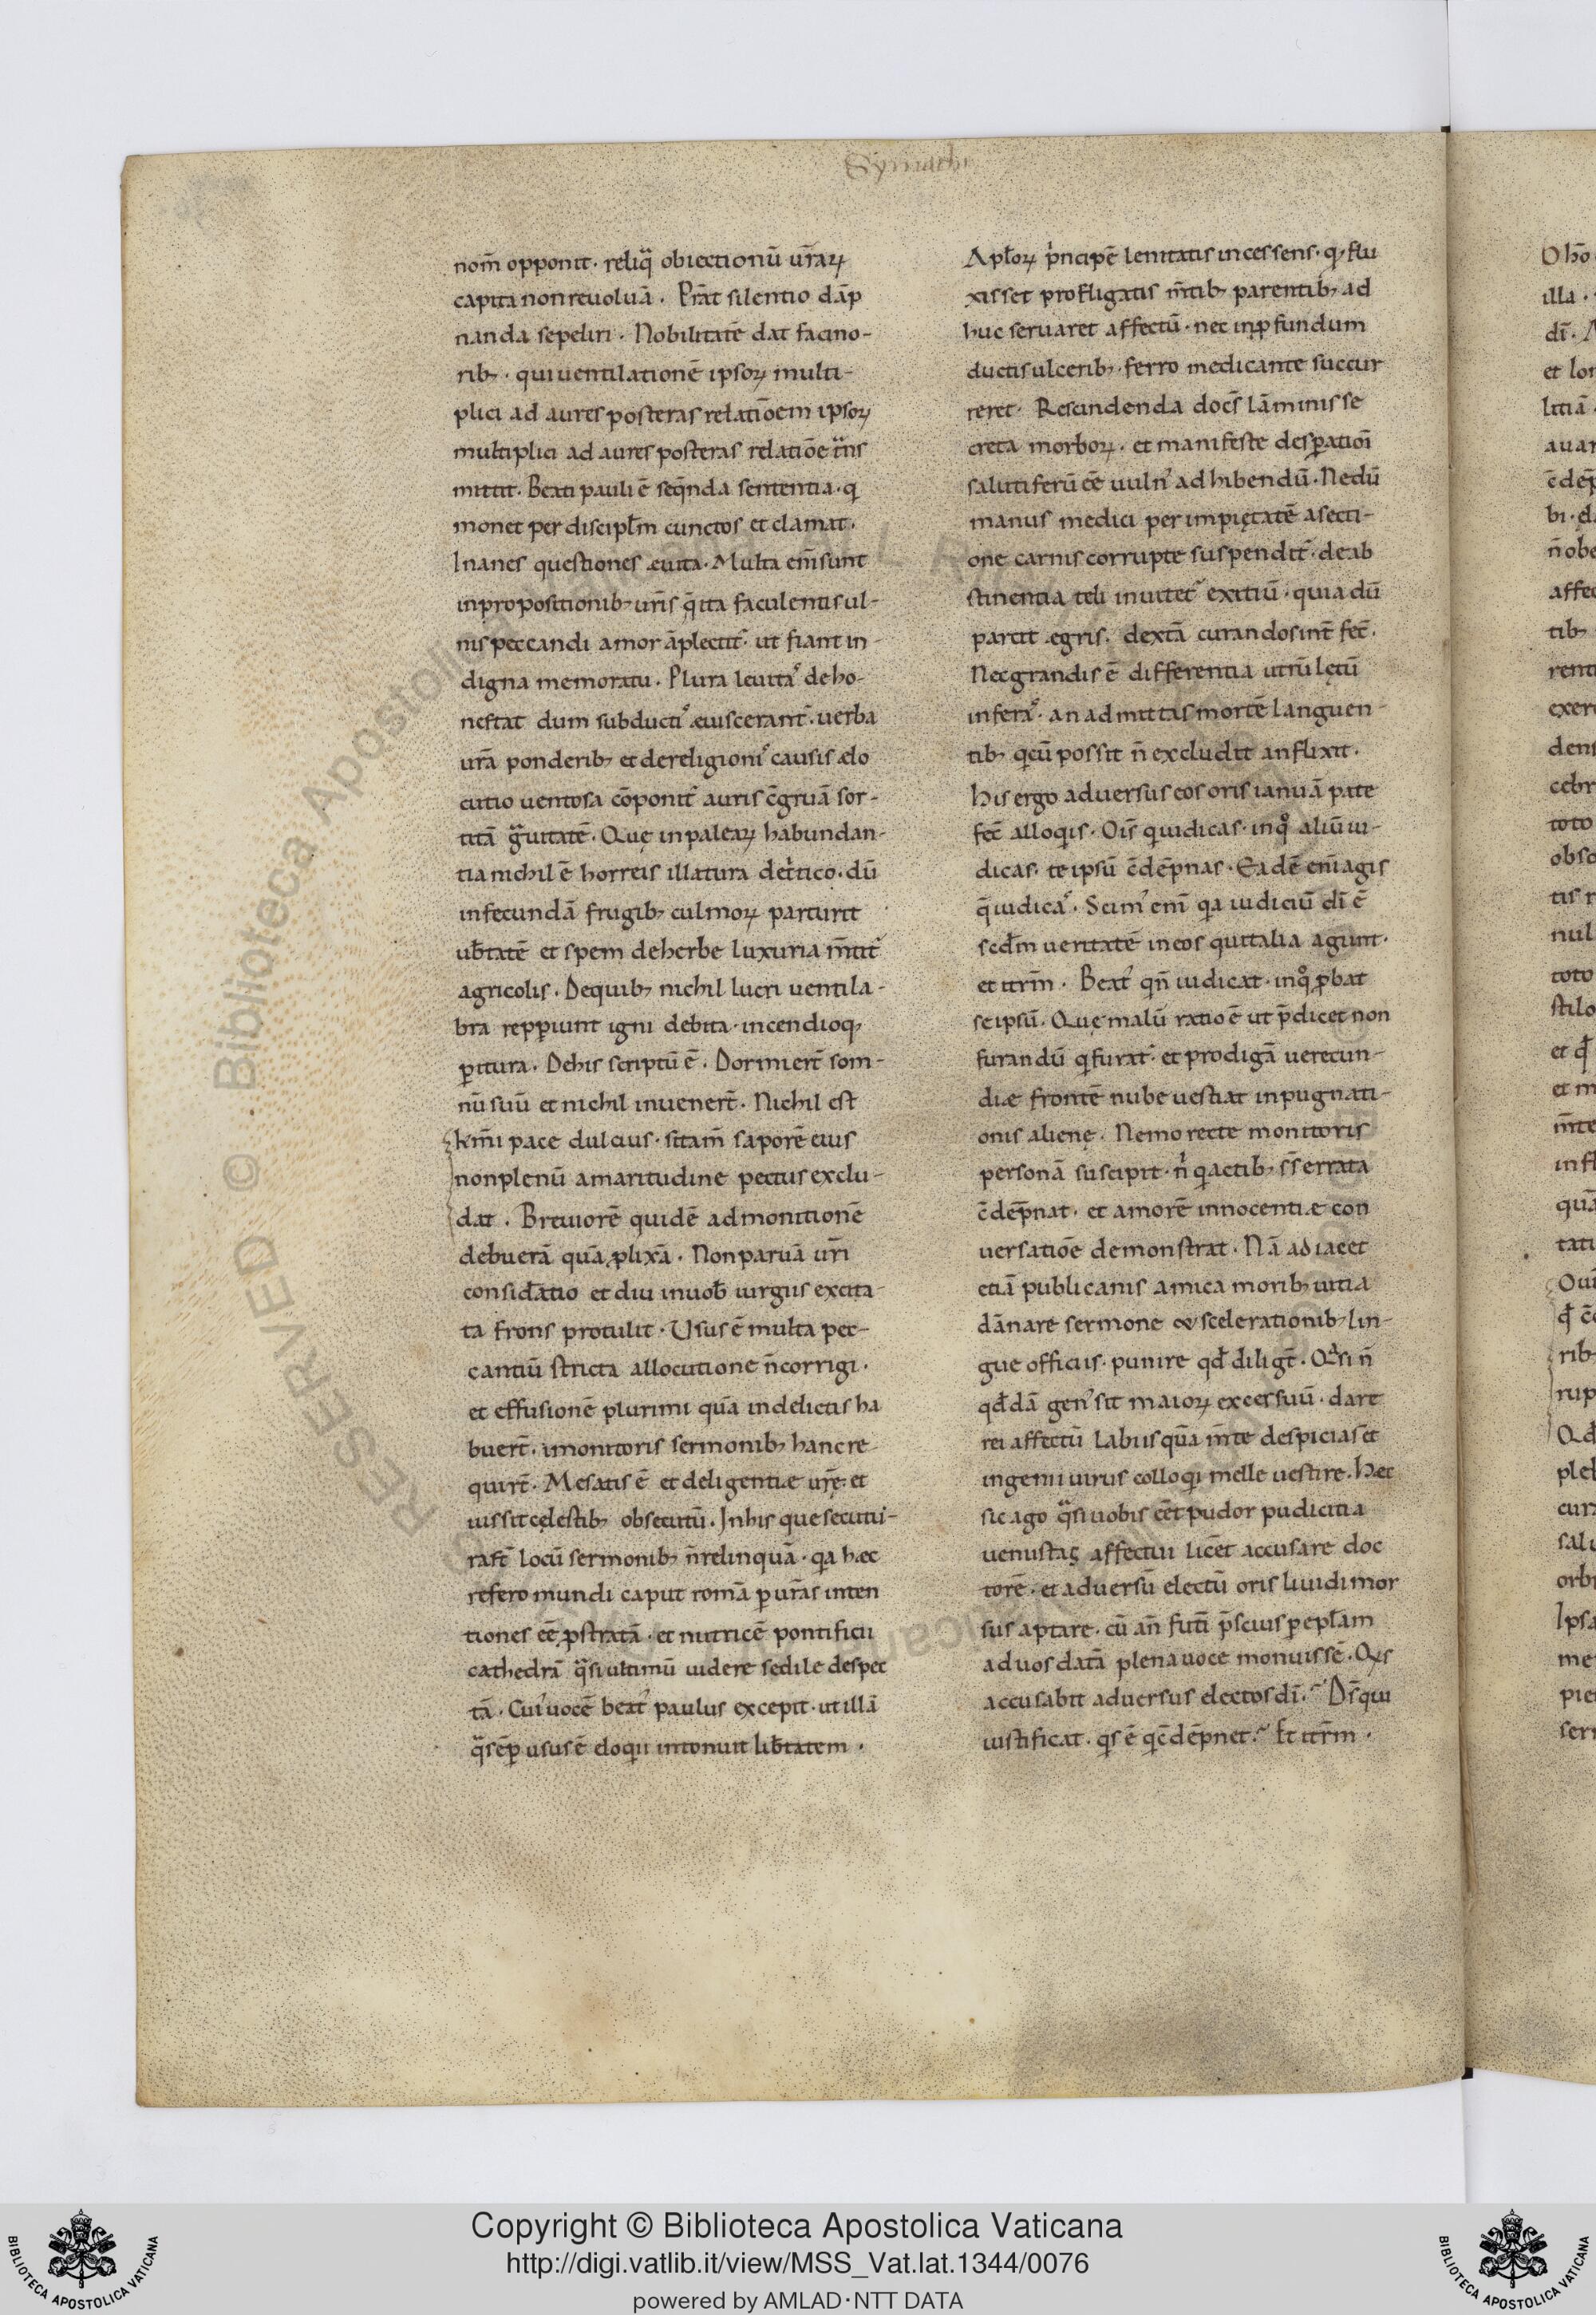 Symachi
nom̄ opponit· reliq̃ obiectionū ur̄aꝝ
capita non reuoluā. Pr̄at silentio dāp
nanda sepeliri. Nobilitatē dat facino-
rib;· qui uentilationē ipsoꝝ multi-
plici ad aures posteras relatiōem ipsoꝝ
multiplici ad aures posteras relatiōe t̃ns
mittit. Beati pauli ē seq̄nda sententia· q
monet per discipl̄m cunctos et clamat.
Inanes questiones euita. Multa em̄ sunt
in propositionib; ur̄is q̄ ita faculentis ul-
nis peccandi amor āplectit᷑· ut fiant in-
digna memoratu. Plura leuitaꝰ de ho-
nestat dum subductiꝰ euiscerant᷑. uerba
ur̄a ponderib; et de religioniꝰ causis ælo
cutio uentosa cōponit᷑ auris c̄gruā sor-
titā g̃uitatē. Quę in palearꝝ habundan-
tia nichil ē horreis illatura de t̓tico. dū
infecundā frugib; culmoꝝ parturit
ub̄tatē et spem de herbe luxuria m̄tit᷑
agricolis. De quib; nichil lucri uentila-
bra repꝑiunt igni debita· incendioq;
ꝑitura. De his scriptū ē. Dormiert̄ som-
nū suū et nichil inuenert̄. Nichil est
km̄i pace dulcius· si tam̄ saporē eius
non plenū amaritudine pectus exclu-
dat. Breuiorē quidē admonitionē
debuerā quā ꝓlixā. Non paruā ur̄i
consid̄atio et diu inuob̄ uirgiis excita-
ta frons protulit. Usus ē multa pec-
cantiū stricta allocutione n̄ corrigi.
et effusionē plurimi quā in delictis ha
buert̄. i monitoris sermonib; hanc re-
quirt̄. Me satis ē et deligentiæ ur̄ę. et
iussit cęlestib; obsecutū. In his que secuti-
raft̄ locū sermonib; n̄ relinquā· qa hæc
refero mundi caput romā ꝑ ur̄as inten
tiones eē ꝓstratā· et nutricē pontificii
cathedrā q̃si ultimū uidere sedile despec
tā. Cuiꝰ uocē beatꝰ paulus excepit· ut illā
q̃ sēꝑ usus ē eloqii intonuit lib̄tatem.
Apl̄oꝝ p̓ncipē lenitatis incessens· q; flu
xisset profligatis m̄tib; parentib; ad
huc seruaret affectū· nec in ꝓfundum
ductis ulcerib;· ferro medicante succur
reret. Rescindenda doc̄s lāminis se
creta morboꝝ. et manifeste desꝑatiōi
salutiferū eē uulnꝰ adhibendū. Nedū
manus medici per impiętatē a secti-
one carnis corrupte suspendit᷑. de ab
stinentia teli inuitet᷑ exitiū· quia dū
parcit ægris. dextā curandos int̄ fec̄.
Nec grandis ē differentia utrū lętū
inferaꝰ· an admittas mortē languen-
tib; q cū possit n̄ excludit anflixit.
His ergo aduersus eos oris ianuā pate
fec̄ alloqis. Oīs q iudicas· in qͦ aliū iu-
dicas· te ipsū c̄dēpnas. Eadē em̄ agis
q̄ iudicaꝰ. Scimꝰ em̄ qa iudiciū dī ē
scd̄m ueritatē in eos qui talia agunt.
et itr̄m. Beatꝰ qn̄ iudicat· in qͦ ꝓbat
se ipsū. Quę malū ratio ē ut p̄dicet non
furandū q furat᷑. et prodigā uerecun-
diæ frontē nube uestiat inpugnati-
onis alienę. Nemo recte monitoris
personā suscipit· n̓ q actib; s̄s errata
c̄dēpnat. et amorē innocentiæ con
uersatiōe demonstrat. Nā adiacet
etiā publicanis amica morib; uitia
dānare sermone & scelerationib; lin-
gue officiis· punire qd̄ diligt̄. Qͣsi n̄
qd̄dā genꝰ sit maioꝝ excessuū· dare
rei affectū labiis quā m̄te despicias et
ingenii uirus colloqi melle uestire. Hæc
sic ago q̃si uobis eēt pudor pudicitia
uenustas affectui licet accusare doc
torē. et aduersū electū oris liuidi mor
sus aptare. cū an̄ futī p̄scius ꝑ epl̄am
ad uos datā plena uoce monuissē. Qis
accusabit aduersus electos dī. Ds̄ qui
iustificat. qs ē q c̄dēpnet. Et itr̄m.
RESERVED © Biblioteca Apostolica
Copyright © Biblioteca Apostolica Vaticana
http://digi.vatlib.it/view/MSS_Vat.lat.1344/0076
powered by AMLAD·NTT DATA
BIBLIOTECA APOSTOLICA VATICANA
BIBLIOTECA APOSTOLICA VATICANA